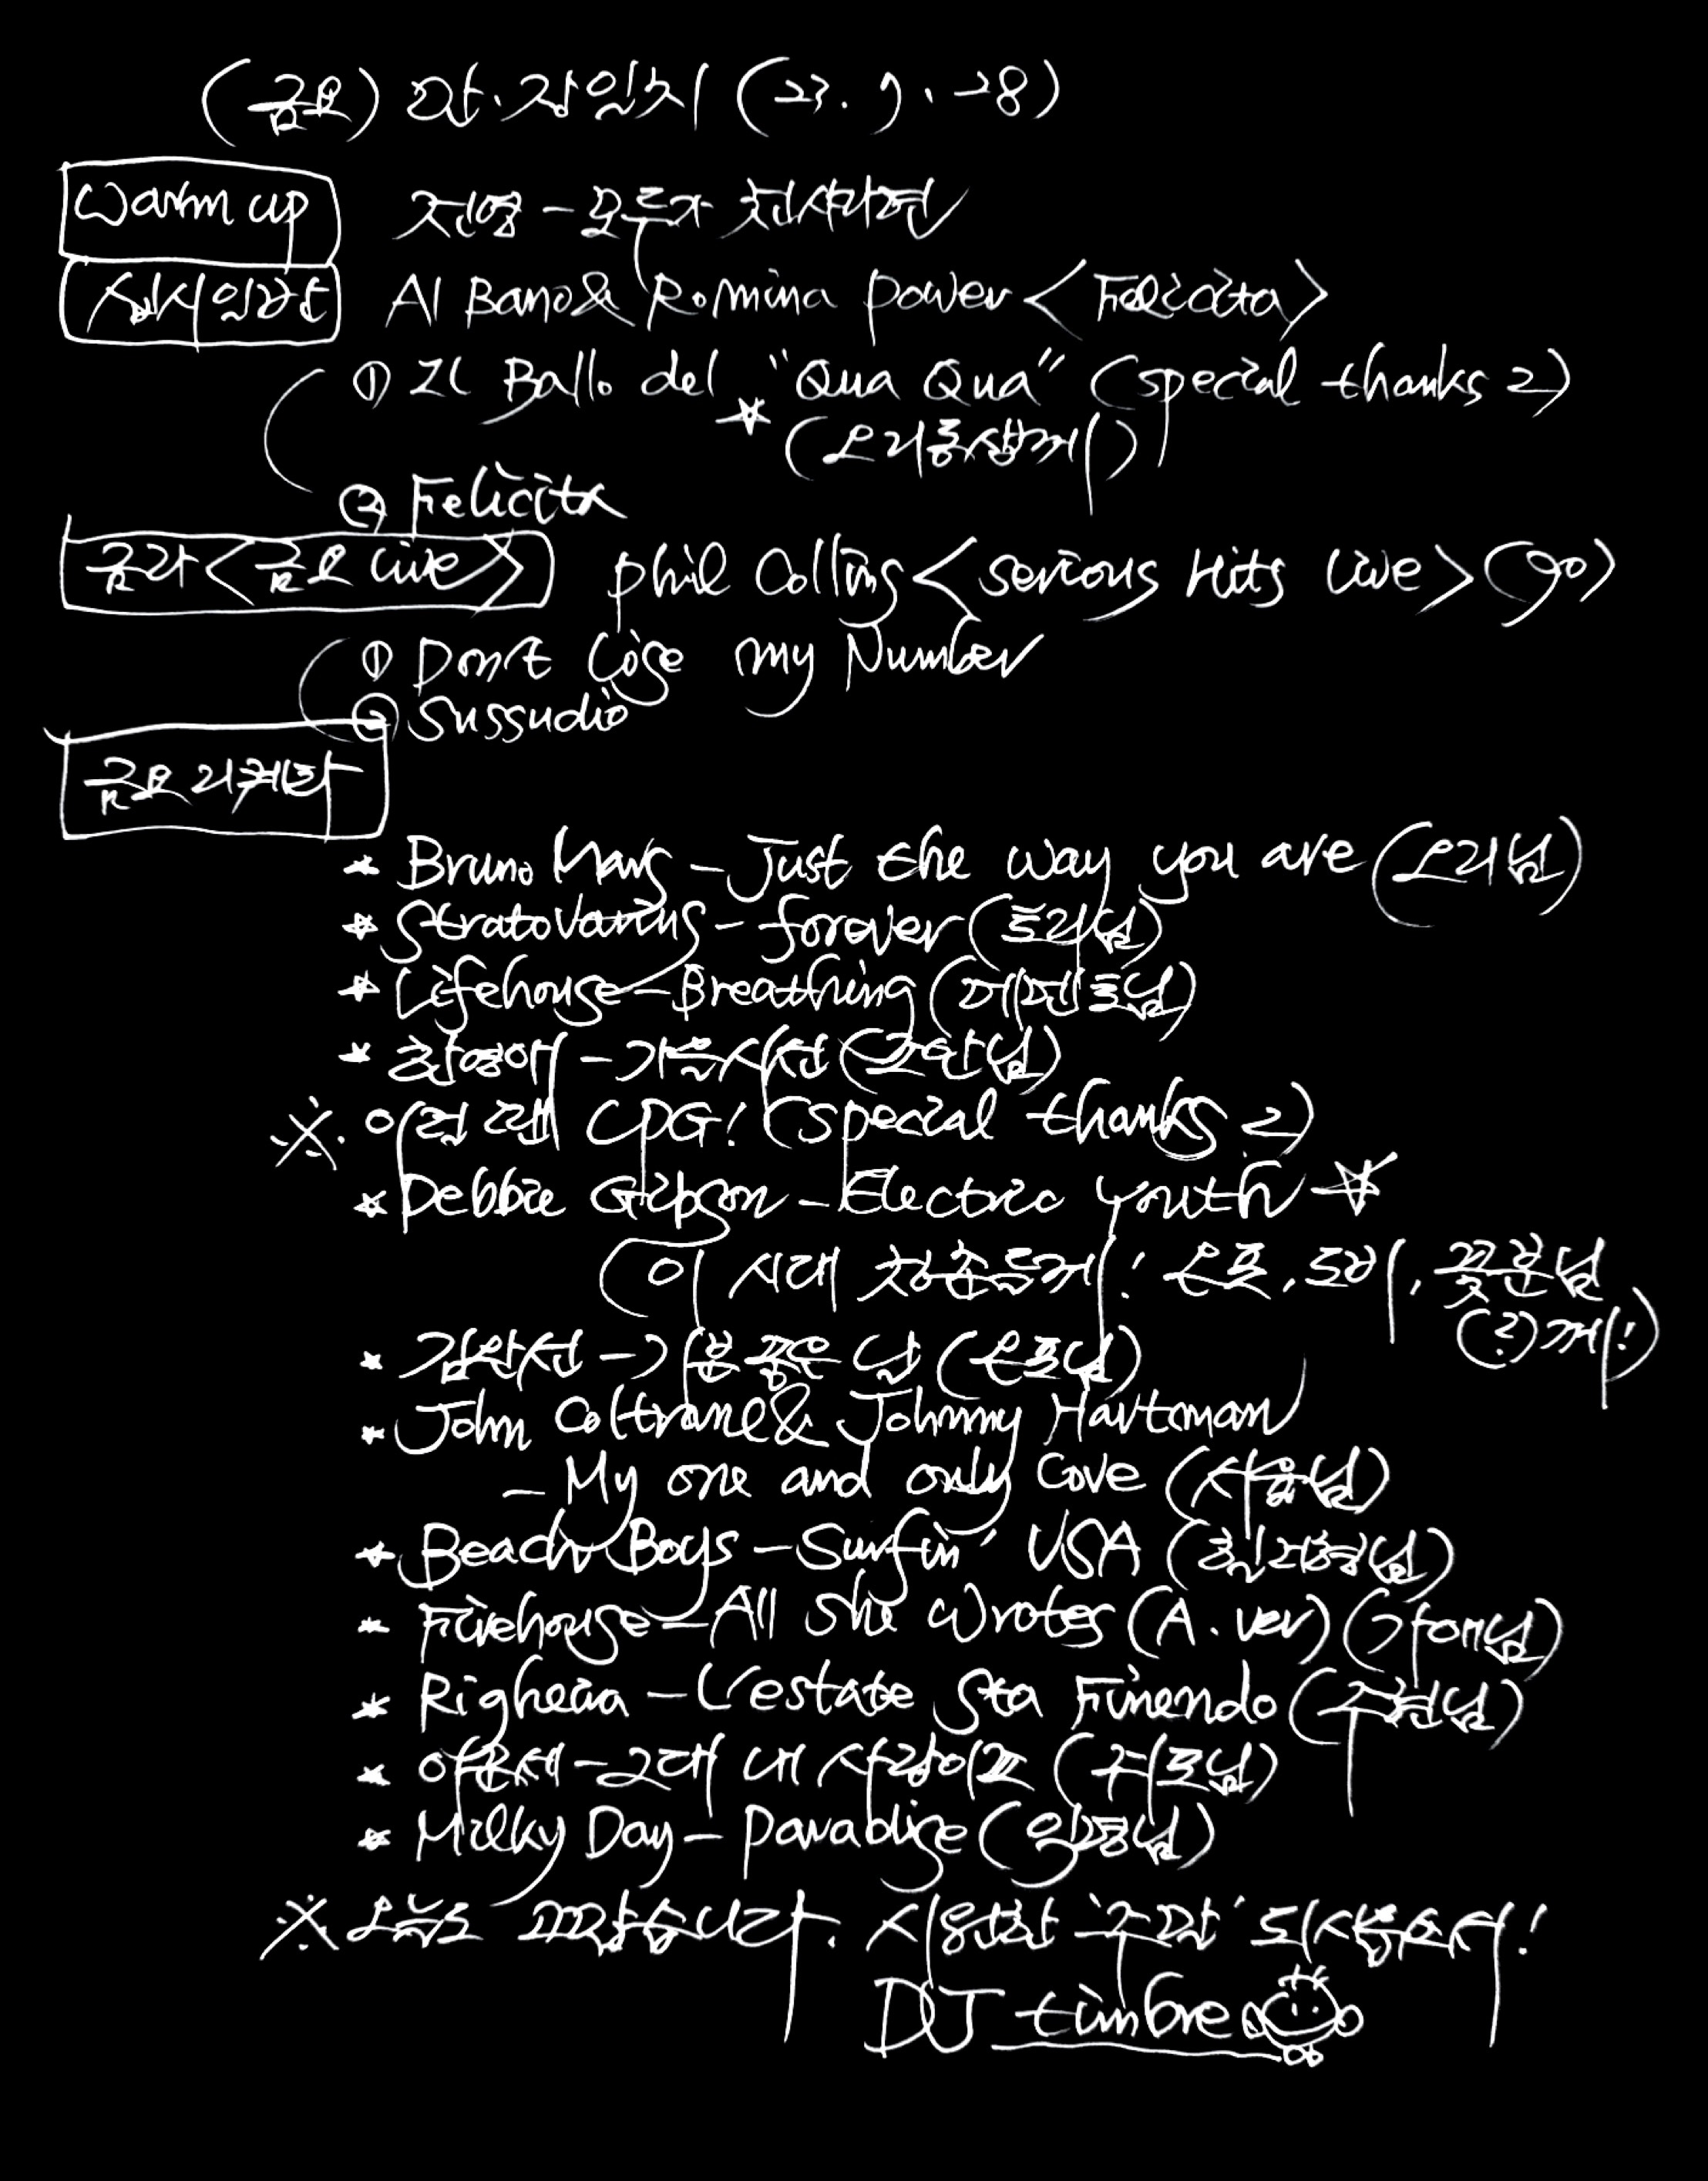 (금요) 음.장일지 (23. 7. 28)
Warm up 진영 - 모두가 천사라면
십시일반 Al Bano & Romina Power <Felicita>
① Il Ballo del "Qua Qua" (special thanks 2)
☆ (오리동상께)
② Felicita
금라<금요 Live> Phil Collins <Serious Hits Live> (90)
① Don't Lose my Number
② Sussudio
금요 리퀘박
* Bruno Mars - Just the way you are (오리님)
* Stratovarius - forever (토리님)
* Lifehouse - Breathing (님)
* 한영애 - 가을시선 (님)
※. CPG! (special thanks 2)
* Debbie Gibson - Electric Youth ☆
(이 시대 청춘들께! 은포, 도비, 꽃분님
(?)께!)
* 김완선 - 기분 좋은 날 (은포님)
* John Coltrane & Johnny Hartman
- My one and only Love (님)
* Beach Boys - Surfin' USA (님)
* Firehouse - All She Wrotes (A. ver) (님)
* Righeira - L'estate Sta Finendo (님)
* 이문세 - 그대 내 사랑이죠 (님)
* Milky Day - Paradise (님)
※ 오늘도 고맙습니다. 시원한 '주말' 되시옵소서!
DJ timbre